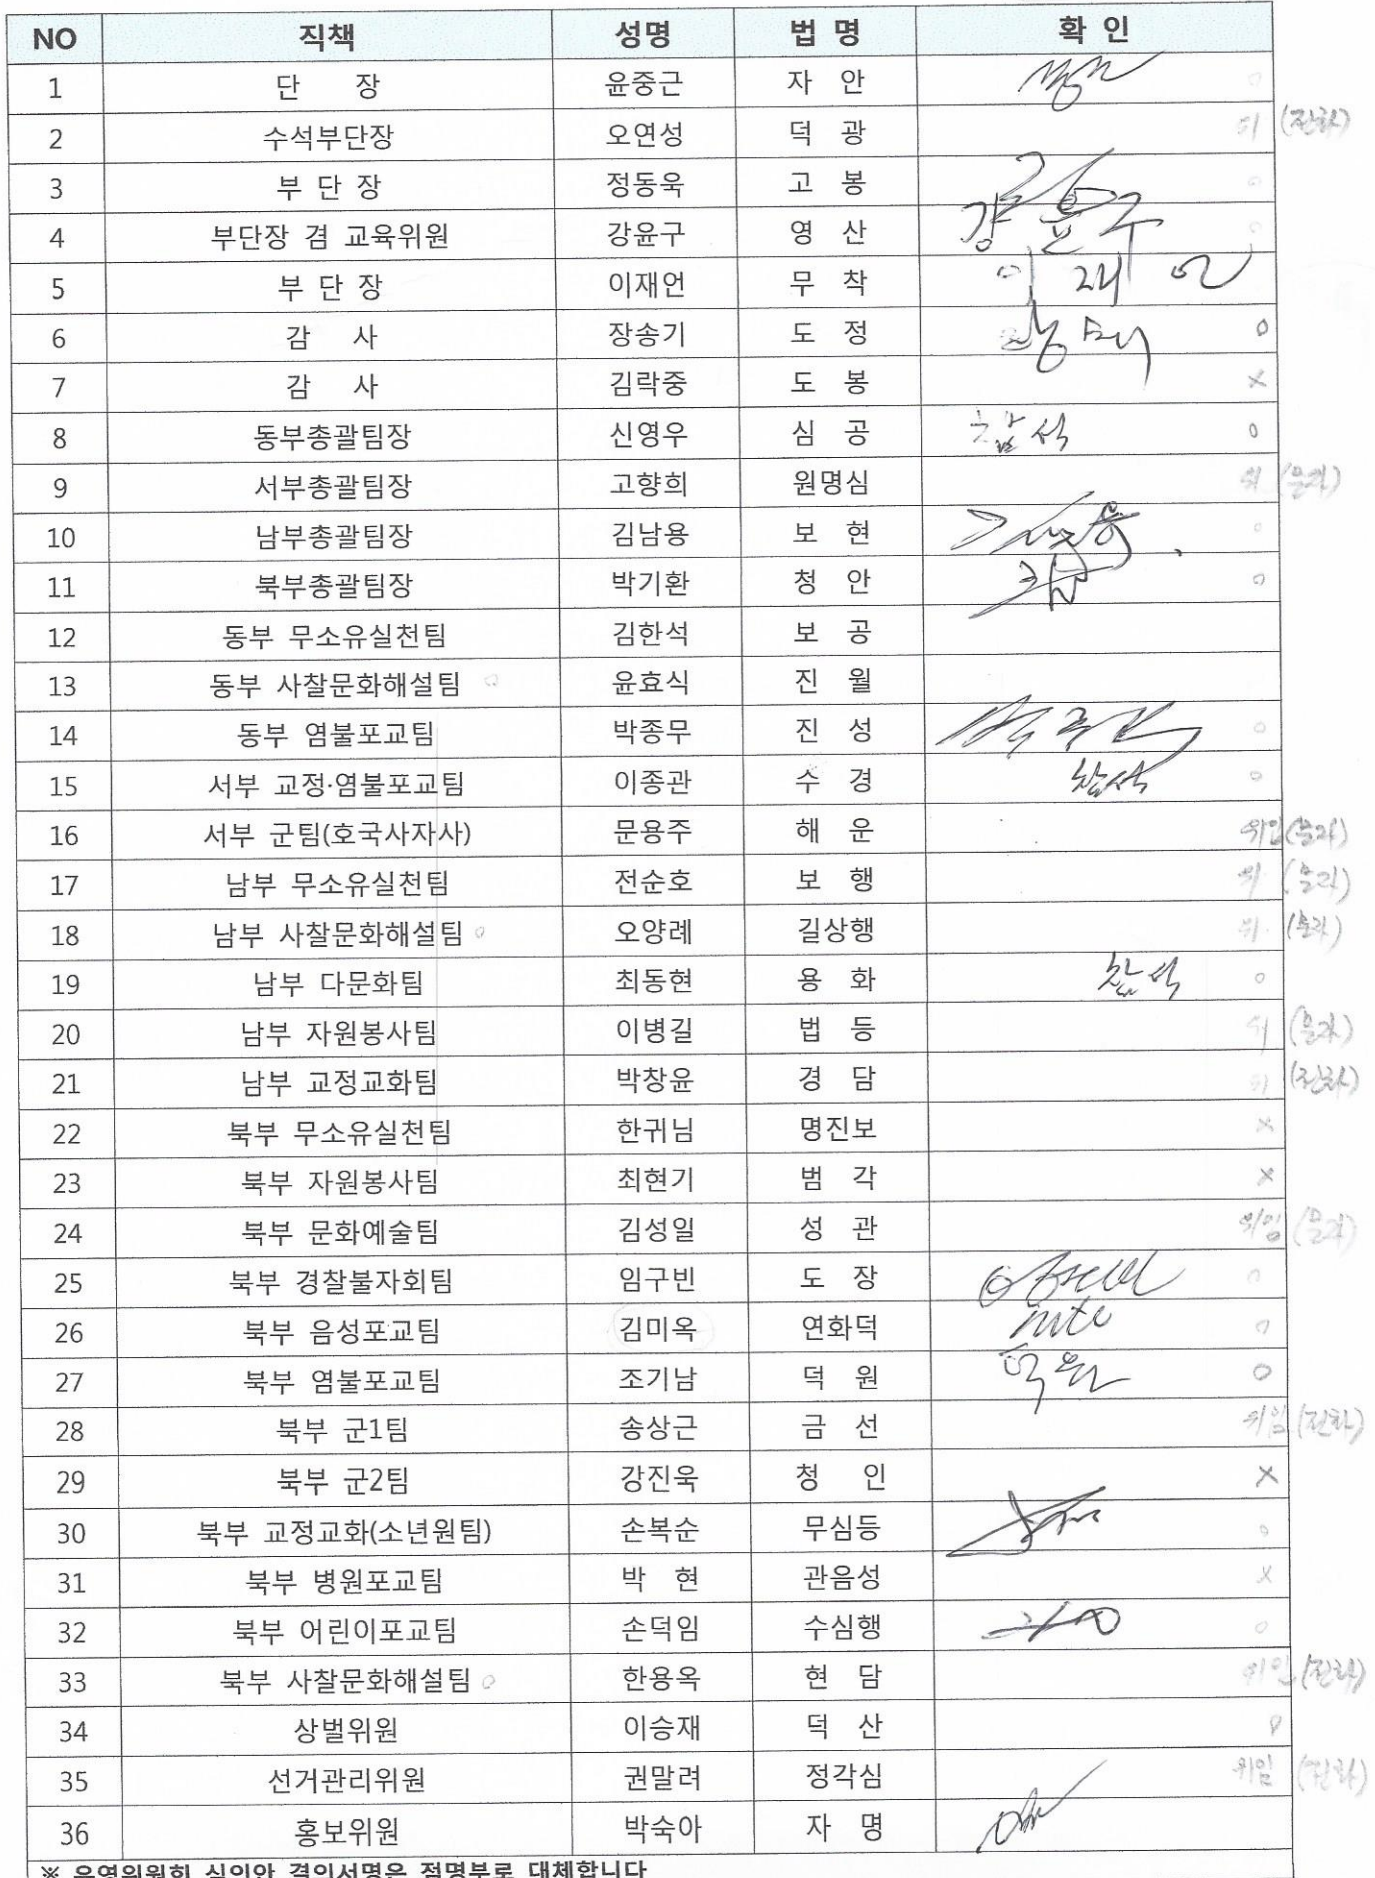 NO 직책 성명 법 명 확 인
1 단 장 윤중근 자 안
2 수석부단장 오연성 덕 광 위 (전화)
3 부 단 장 정동욱 고 봉
4 부단장 겸 교육위원 강윤구 영 산 강윤구
5 부 단 장 이재언 무 착 이재언
6 감 사 장송기 도 정 o
7 감 사 김락중 도 봉 x
8 동부총괄팀장 신영우 심 공 참석 o
9 서부총괄팀장 고향희 원명심 위 (문자)
10 남부총괄팀장 김남용 보 현 o
11 북부총괄팀장 박기환 청 안 o
12 동부 무소유실천팀 김한석 보 공
13 동부 사찰문화해설팀 o 윤효식 진 월
14 동부 염불포교팀 박종무 진 성 o
15 서부 교정·염불포교팀 이종관 수 경 참석 o
16 서부 군팀(호국사자사) 문용주 해 운 위임 (문자)
17 남부 무소유실천팀 전순호 보 행 위 (문자)
18 남부 사찰문화해설팀 o 오양례 길상행 위 (문자)
19 남부 다문화팀 최동현 용 화 참석 o
20 남부 자원봉사팀 이병길 법 등 위 (문자)
21 남부 교정교화팀 박창윤 경 담 위 (전화)
22 북부 무소유실천팀 한귀님 명진보 x
23 북부 자원봉사팀 최현기 범 각 x
24 북부 문화예술팀 김성일 성 관 위임 (문자)
25 북부 경찰불자회팀 임구빈 도 장 o
26 북부 음성포교팀 김미옥 연화덕 o
27 북부 염불포교팀 조기남 덕 원 덕원 o
28 북부 군1팀 송상근 금 선 위임 (전화)
29 북부 군2팀 강진욱 청 인 x
30 북부 교정교화(소년원팀) 손복순 무심등 o
31 북부 병원포교팀 박 현 관음성 x
32 북부 어린이포교팀 손덕임 수심행 o
33 북부 사찰문화해설팀 o 한용옥 현 담 위임 (전화)
34 상벌위원 이승재 덕 산 o
35 선거관리위원 권말려 정각심 위임 (전화)
36 홍보위원 박숙아 자 명
※ 운영위원회 심의안 결의서명은 점명부로 대체합니다